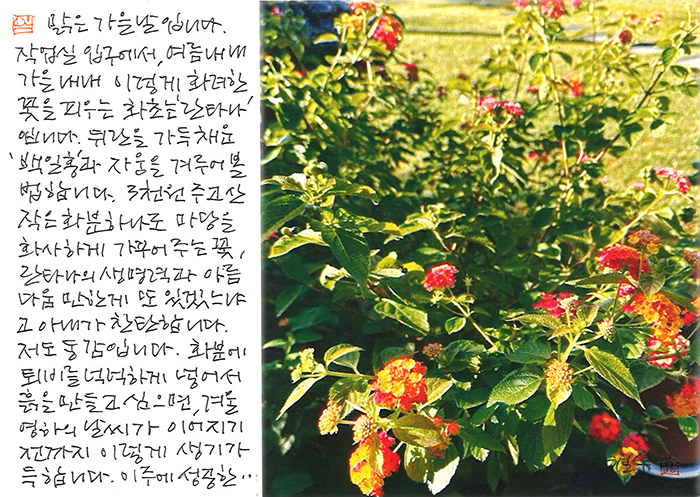 맑은 가을날 입니다.
작업실 입구에서, 여름내내
가을내내 이렇게 화려한
꽃을 피우는 화초는 '란타나'
입니다. 뒤란을 가득채운
'백일홍'과 자웅을 겨루어 볼
법합니다. 3천원 주고 산
작은 화분 하나로 마당을
화사하게 가꾸어주는 꽃,
란타나의 생명력과 아름
다움 만한게 또 있겠느냐
고 아내가 찬탄합니다.
저도 동감입니다. 화분에
퇴비를 넉넉하게 넣어서
흙을 만들고 심으면, 겨울
영하의 날씨가 이어지기
전까지 이렇게 생기가
득합니다. 이주에 성공한…